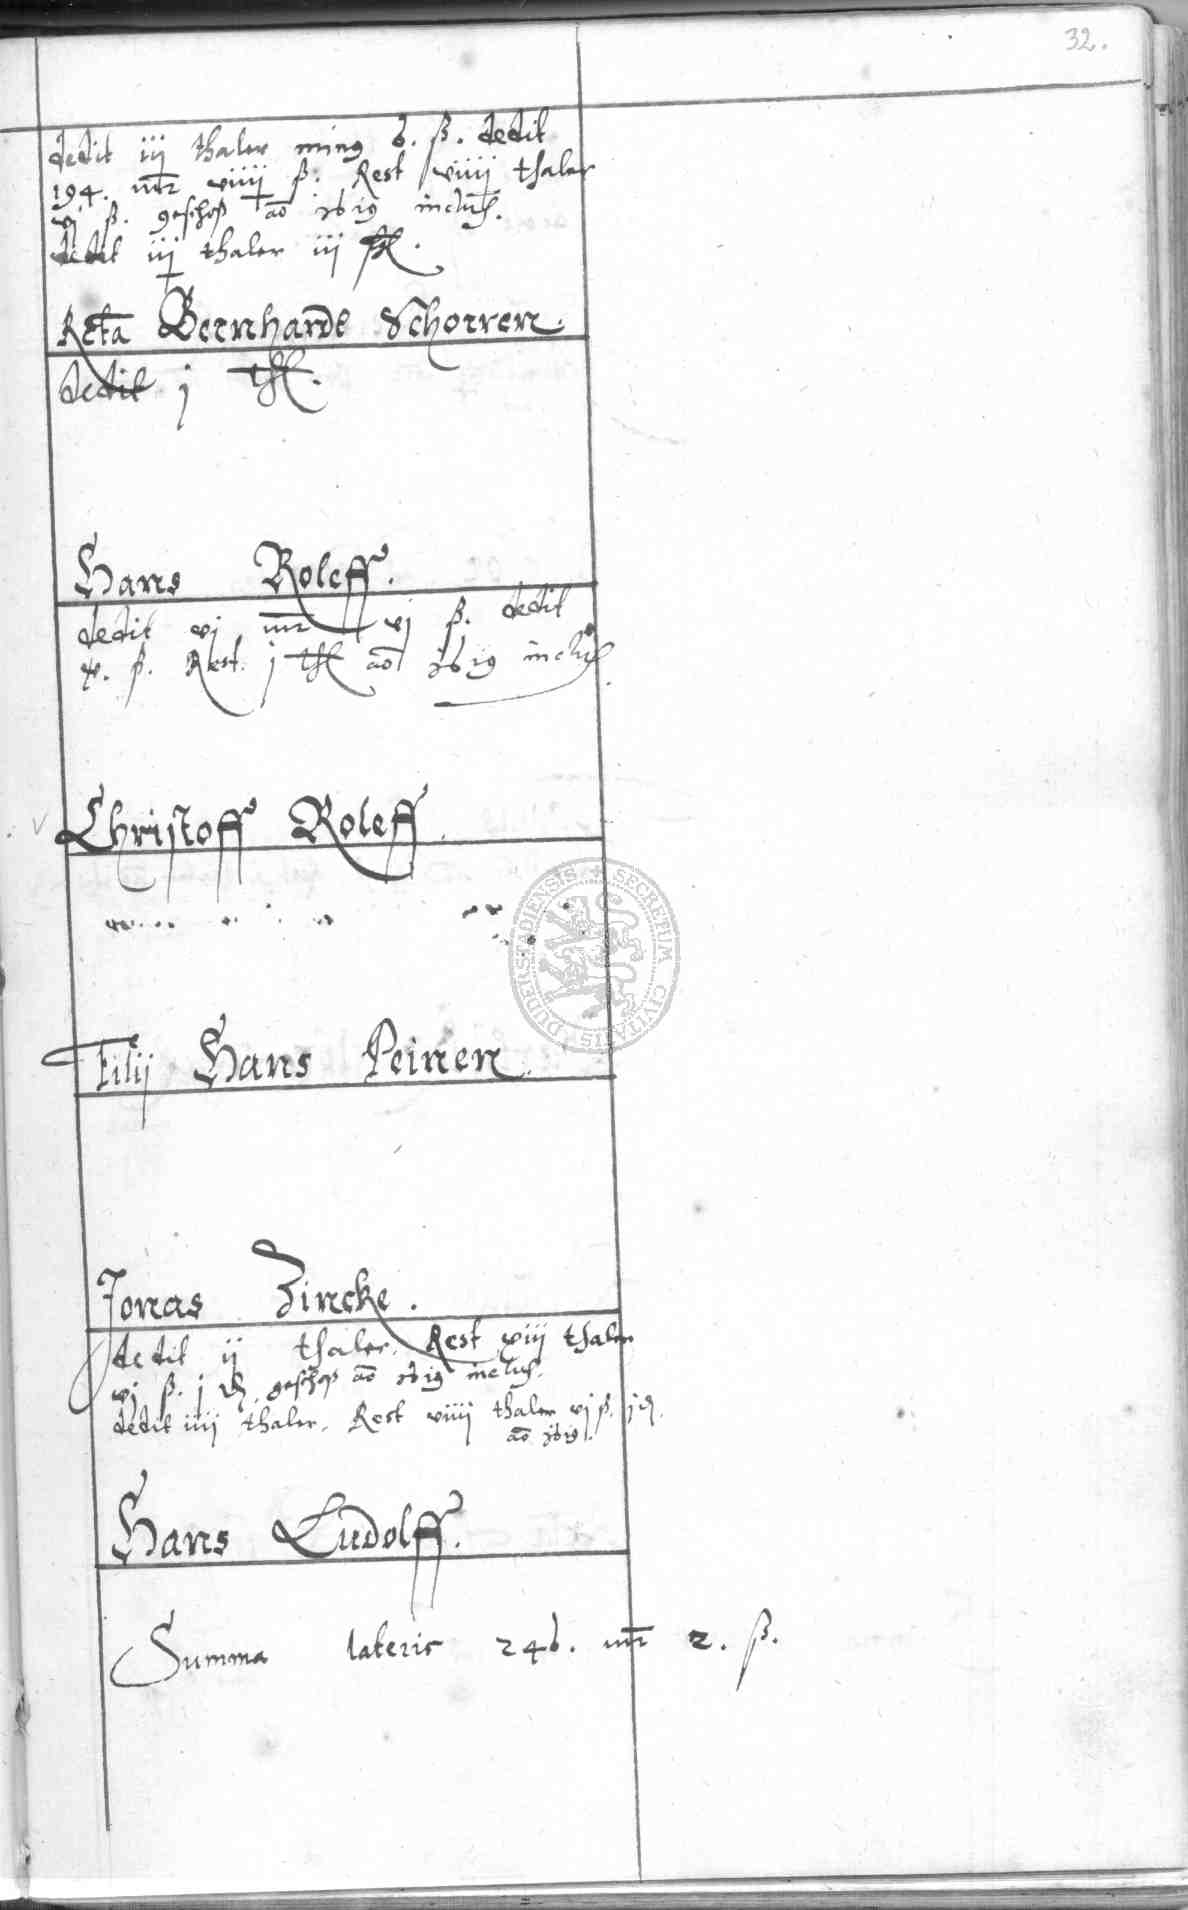 32.
dedit iij thaler minus 6. ß. dedit
194. mr viiij ß. Rest viiij thaler
vj ß. geschoß ao 1619 inclus.
dedit iij thaler iij
Rcta Bernhardt Schorren.
dedit j thl.
Hans Roleff.
dedit vj mr vj ß. dedit
x. ß. Rest. j thl ao 1619 inclus
Christoff Roleff.
Filij Hans Peinen.
Jonas Zincke.
dedit ij thaler. Rest viij thaler
vj ß. j d. geschoß ao 1619 inclus.
dedit iiij thaler. Rest viiij thaler vj ß. j d.
ao 1619.
Hans Ludolff.
Summa lateris 246. mr 2. ß.
SECRETUM CIVITATIS DUDERSTADIENSIS